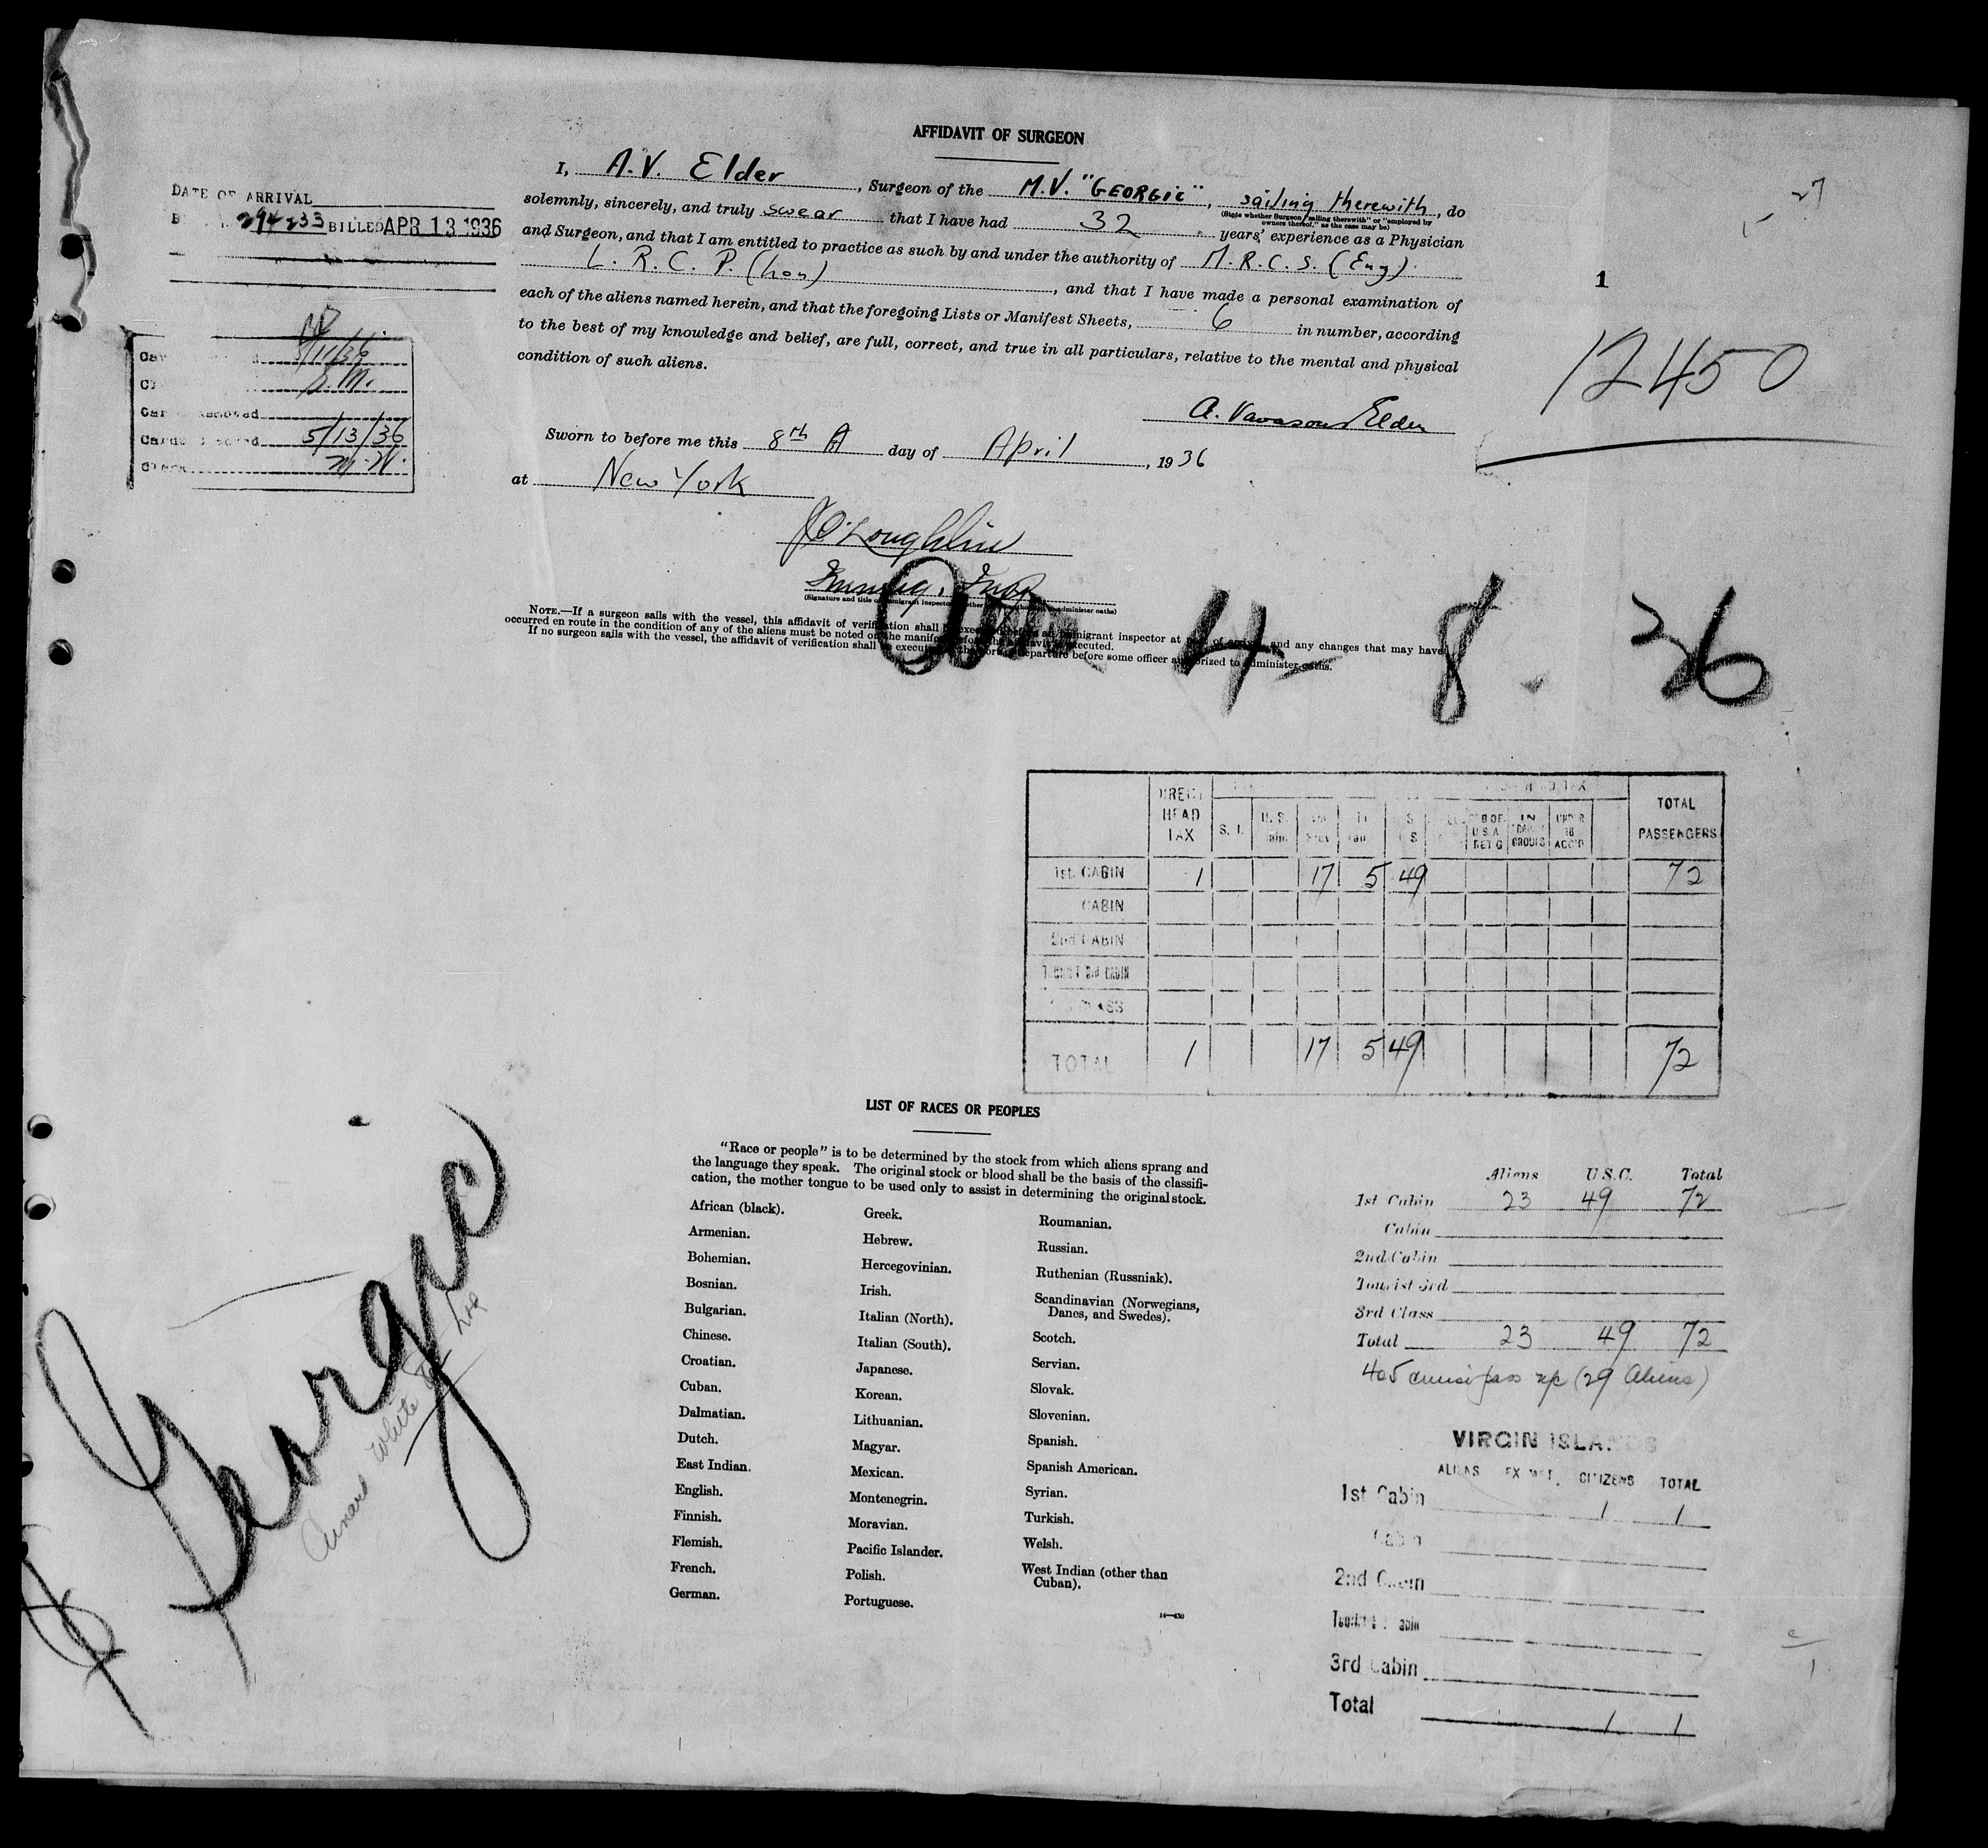 AFFIDAVIT OF SURGEON
I, A. V. Elder, Surgeon of the M.V. "GEORGIC", sailing therewith, do
(State whether Surgeon "sailing therewith" or "employed by owners thereof," as the case may be)
solemnly, sincerely, and truly swear that I have had 32 years' experience as a Physician
and Surgeon, and that I am entitled to practice as such by and under the authority of M.R.C.S. (Eng)
L.R.C.P. (Lon), and that I have made a personal examination of
each of the aliens named herein, and that the foregoing Lists or Manifest Sheets, 6 in number, according
to the best of my knowledge and belief, are full, correct, and true in all particulars, relative to the mental and physical
condition of such aliens.
A. Vavasour Elder
Sworn to before me this 8th A day of April, 1936
at New York
J O'Loughlin
Immig. Insp
NOTE.—If a surgeon sails with the vessel, this affidavit of verification shall be executed before an immigrant inspector at port of arrival, and any changes that may have
occurred en route in the condition of any of the aliens must be noted on the manifest before the affidavit is executed.
If no surgeon sails with the vessel, the affidavit of verification shall be executed at the port of departure before some officer authorized to administer oaths.
DATE OF ARRIVAL
294233 BILLED APR 13 1936
5/11/36
S.M.
5/13/36
M.W.
Clerk
27
1
12450
4 - 8 . 36
DIRECT HEAD TAX
S. I.
TOTAL PASSENGERS
1st CABIN 1 17 5 49 72
CABIN
2nd CABIN
TOTAL 1 17 5 49 72
LIST OF RACES OR PEOPLES
"Race or people" is to be determined by the stock from which aliens sprang and
the language they speak. The original stock or blood shall be the basis of the classifi-
cation, the mother tongue to be used only to assist in determining the original stock.
African (black).
Armenian.
Bohemian.
Bosnian.
Bulgarian.
Chinese.
Croatian.
Cuban.
Dalmatian.
Dutch.
East Indian.
English.
Finnish.
Flemish.
French.
German.
Greek.
Hebrew.
Hercegovinian.
Irish.
Italian (North).
Italian (South).
Japanese.
Korean.
Lithuanian.
Magyar.
Mexican.
Montenegrin.
Moravian.
Pacific Islander.
Polish.
Portuguese.
Roumanian.
Russian.
Ruthenian (Russniak).
Scandinavian (Norwegians,
Danes, and Swedes).
Scotch.
Servian.
Slovak.
Slovenian.
Spanish.
Spanish American.
Syrian.
Turkish.
Welsh.
West Indian (other than
Cuban).
14—430
Aliens U.S.C. Total
1st Cabin 23 49 72
Cabin
2nd Cabin
Tourist 3rd
3rd Class
Total 23 49 72
405 cruise pass (29 Aliens)
VIRGIN ISLANDS
ALIENS CITIZENS TOTAL
1st Cabin 1 1
Cabin
2nd Cabin
3rd Cabin
Total 1 1
Georgic
Cunard White Star Line